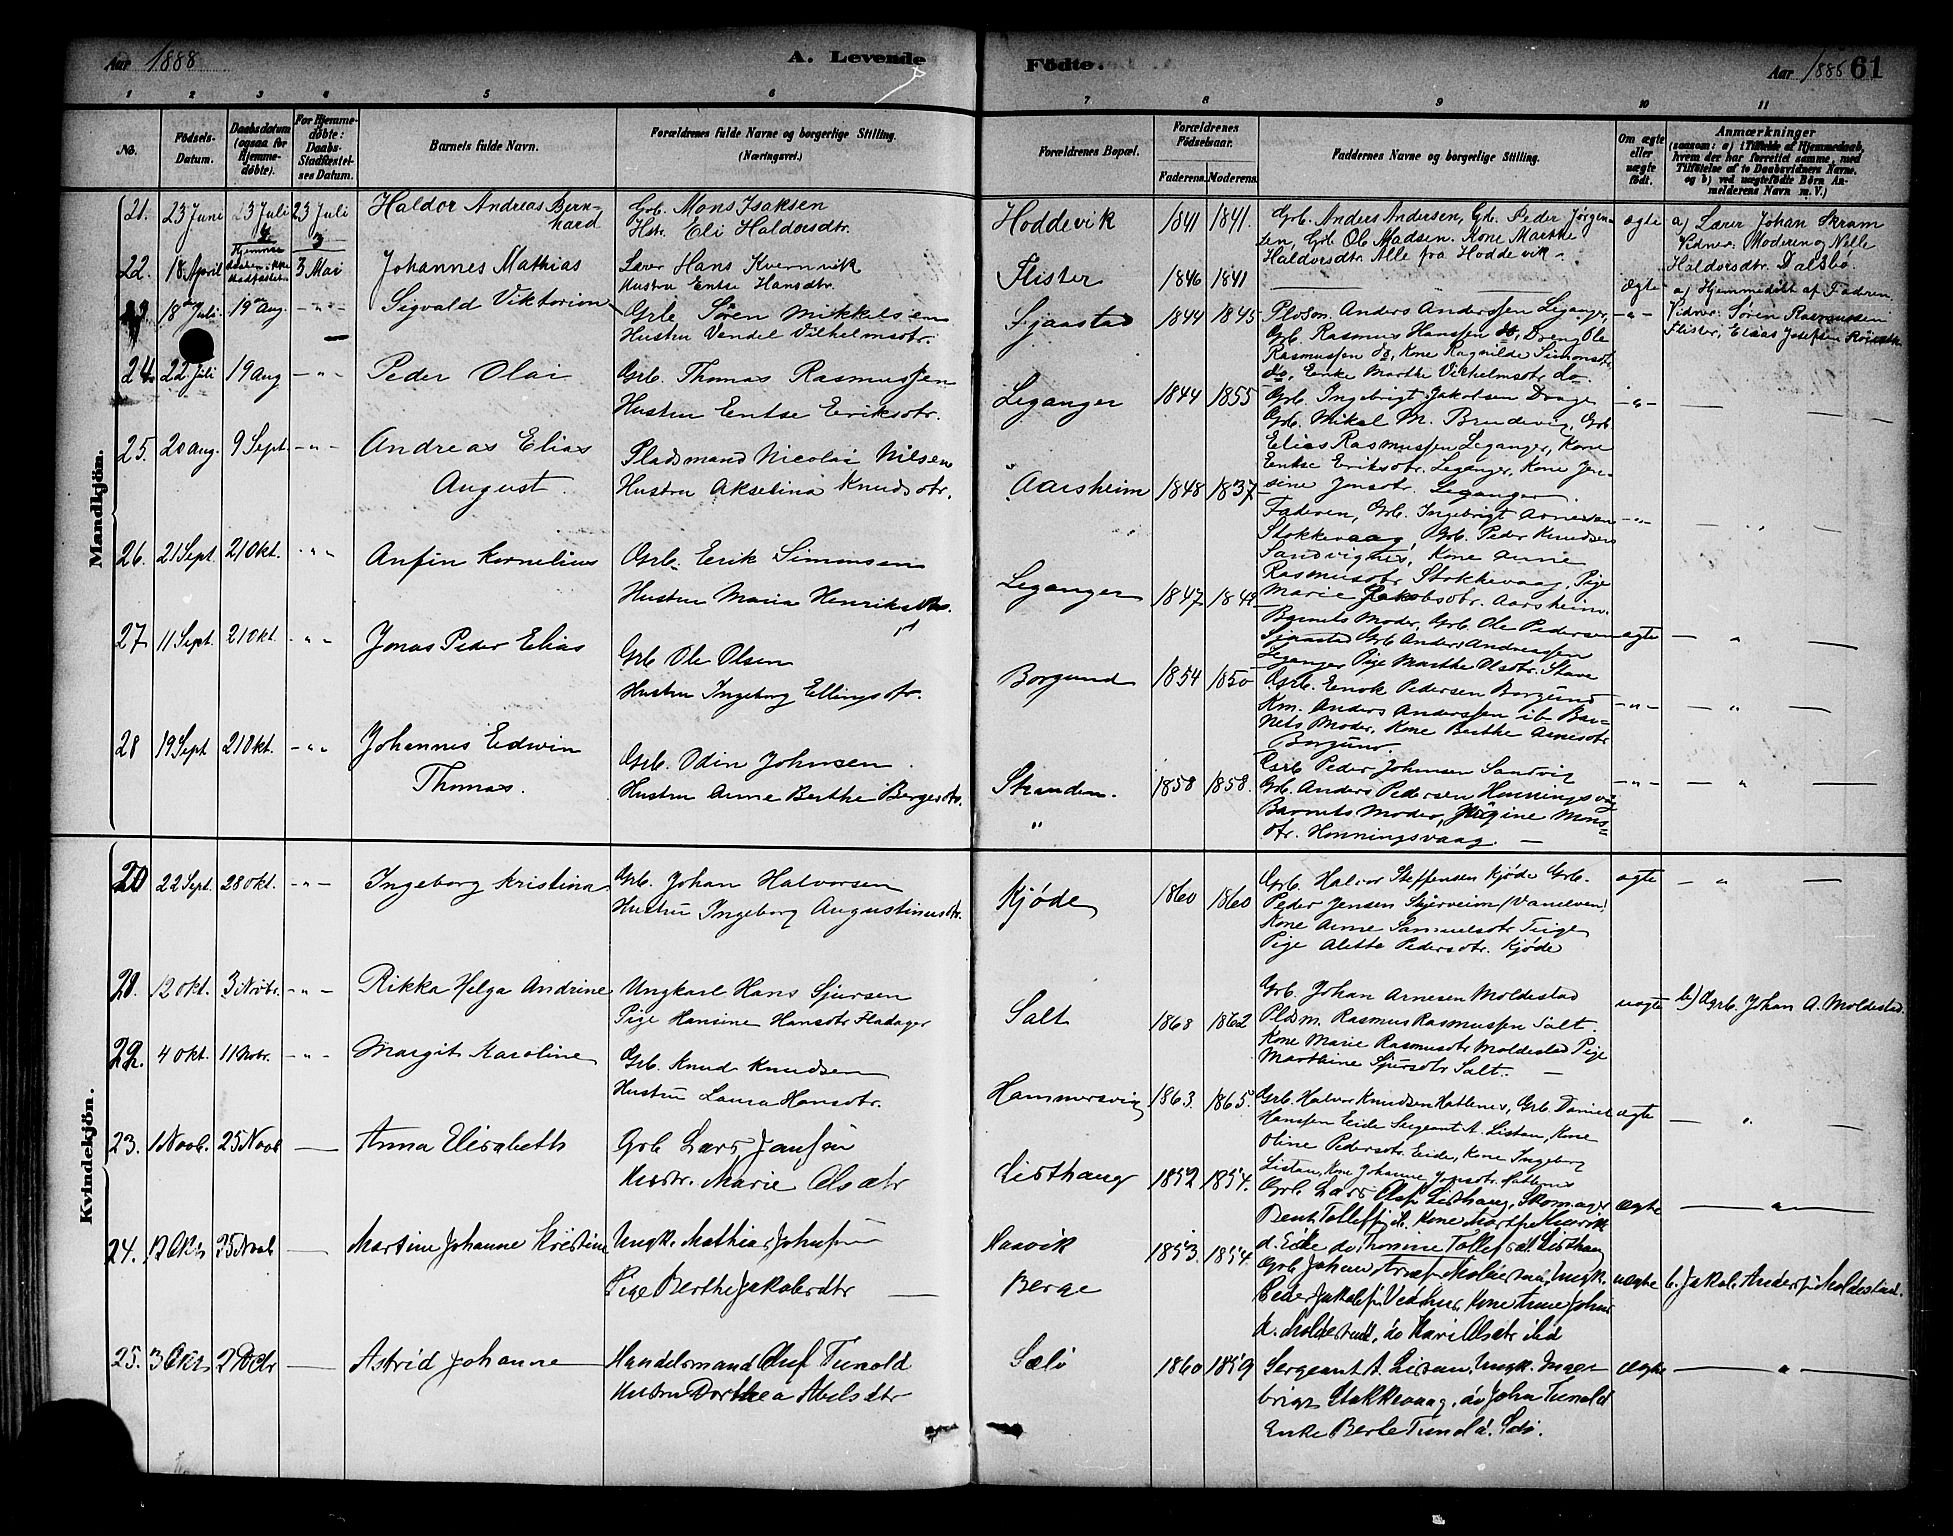 Aar 1888
A. Levende
Födte.
Aar 1888 61
1 2 3 4 5 6 7 8 9 10 11
No.
Födsels-Datum.
Daabsdatum (ogsaa for Hjemmedöbte).
For Hjemmedöbte: Daabs-Stadfæstelses Datum.
Barnets fulde Navn.
Forældrenes fulde Navne og borgerlige Stilling. (Næringsvei.)
Forældrenes Bopæl.
Forældrenes Födselsaar. Faderens. Moderens.
Faddernes Navne og borgerlige Stilling.
Om ægte eller uægte födt.
Anmærkninger
(saasom: a) i Tilfælde af Hjemmedaab, hvem der har forrettet samme, med Tilföielse af to Daabsvidners Navne, og b) ved uægtefödte Börn Anmelderens Navn m. V.)
Mandkjön.
21. 23 Juni 23 Juli 23 Juli Haldor Andreas Bern-
hard
Grb. Mons Isaksen
Hstr. Eli Haldorsdtr.
Hoddevik 1841 1841.
Grb. Anders Andersen, Gb. Peder Jørgen-
sen, Grb. Ole Madsen. Kone Marthe
Haldorsdtr. Alle fra Hoddevik.
ægte
a) Lærer Johan Skram
Vidner: Moderen og Nille
Haldorsdtr. Dalsbø.
22. 18 April 3 Mai Johannes Mathias
Lærer Hans Kvernvik
Hustru Entse Hansdtr.
Flister 1846 1841
Ægte
a) Hjemmedöbt af Fadren.
Vidner: Søren Rasmussen
Flister, Elias Josefsen
23 18 Juli 19 Aug. Sigvald Viktorion
Grb. Sören Mikkelsen
Hustru Vendel Vilhelmsdtr.
Sjaastad 1844 1845
Pladsm. Anders Anderssen Leganger,
Grb. Rasmus Hanssen do, Dreng Ole
Rasmussen do, Kone Ragnilde Simonsdtr.
do, Enke Marthe Vilhelmsdtr. do.
24. 22 Juli 19 Aug Peder Olai
Grb. Thomas Rasmussen
Hustru Entse Eriksdtr.
Leganger 1844 1855
Grb. Ingebrigt Jakobsen Drage
Grb. Mikal M. Brudevig, Grb.
Elias Rasmussen Leganger, Kone
Entse Eriksdtr. Leganger, Kone Jen-
sine Jonsdtr. Leganger.
25. 20 Aug. 9 Sept. Andreas Elias
August
Pladsmand Nicolai Nilsen
Hustru Akselina Knudsdtr.
Aarsheim 1848 1837
Faderen, Grb. Ingebrigt Arnesen
Stokkevaag, Grb. Peder Knudsen
Sandvignes, Kone Anne
Rasmusdtr. Stokkevaag, Pige
Marie Jakobsdtr. Aarsheim.
26. 21 Sept. 21 Okt. Anfin Kornelius
Grb. Erik Simonsen
Hustru Maria Henriksdtr.
Leganger 1847
Barnets Moder, Grb. Ole Pedersen
Sjaastad Grb Anders Andreassen
Leganger Pige Marthe Olsdtr. Stave
ægte
27 11 Sept. 21 Okt. Jonas Peder Elias
Grb. Ole Olsen
Hustru Ingeborg Ellingsdtr.
Borgund 1854 1850
Grb. Enok Pedersen Borgund
Km. Anders Anderssen ib. Bar-
nets Moder, Kone Berthe Arnesdtr
Borgund.
28 19 Sept 21 Okt. Johannes Edwin
Thomas.
Grb. Odin Johnsen.
Hustru Anne Berthe Børgesdtr.
Stranden. 1858 1858.
Grb Peder Johnsen Sandvig
Grb. Anders Pedersen Honningsvåg
Barnets Moder, Jørgine Mons-
dtr. Honningsvaag.
Kvindekjön.
20 22 Sept. 28 Okt. Ingeborg Kristina
Grb. Johan Halvorsen
Hustru Ingeborg Augustinusdtr.
Kjøde 1860 1860
Grb. Halvor Steffensen Kjøde Grb.
Peder Jensen Skjerveim (Vanelven)
Kone Anne Samuelsdtr Teige
Pige Alette Pedersdtr. Kjøde
ægte
21. 12 Okt. 3 Novbr. Rikka Helga Andrine
Ungkarl Hans Sjursen
Pige Hansine Hansdtr Fladager
Salt 1868 1862
Grb. Johan Arnesen Moldestad
Pldsm. Rasmus Rasmussen Salt.
Kone Marie Rasmusdtr Moldestad Pige
Marthine Sjursdtr Salt.
uægte b) Grb. Johan A. Moldestad.
22. 4 Okt. 11 Novbr. Margit Karoline
Grb. Knud Knudsen
Hustru Laura Hansdtr.
Hammersvig 1863. 1865.
Grb. Halvor Knudsen Hatlenes, Grb. Daniel
Hanssen Eide Sergeant A. Listau, Kone
Oline Pedersdtr. Eide, Kone Ingeborg
Listau, Kone Johanne Jonsdtr. Hatlenes
ægte
23. 1 Novb. 25 Novb Anna Elisabeth
Grb Lars Jansen
Hustr. Marie Olsdtr
Listhaug 1852 1854.
Grb Lars Olsen Listhaug, Skomager
Bent Tollefsen
do Thomine Tollefsdt. Listhaug
ægte
24. 12 Okt 25 Novb Martine Johanne Kristine
Ungk. Mathias Johnsen
Pige Berthe Jakobsdtr
Haavik
Berge 1853. 1854.
d. Moldestad, do Kari Olsdtr ibid
uægte b. Jakob Anders. Moldestad.
25. 3 Okt 2 Decbr Astrid Johanne
Handelsmand Oluf Tunold
Hustru Dorthea Abelsdtr
Sælø 1860 1859
Sergeant A. Listau, Ungk. Inge-
brigt Stokkevaag, do John Tunold
Enke Berte Tunold. Selø.
ægte